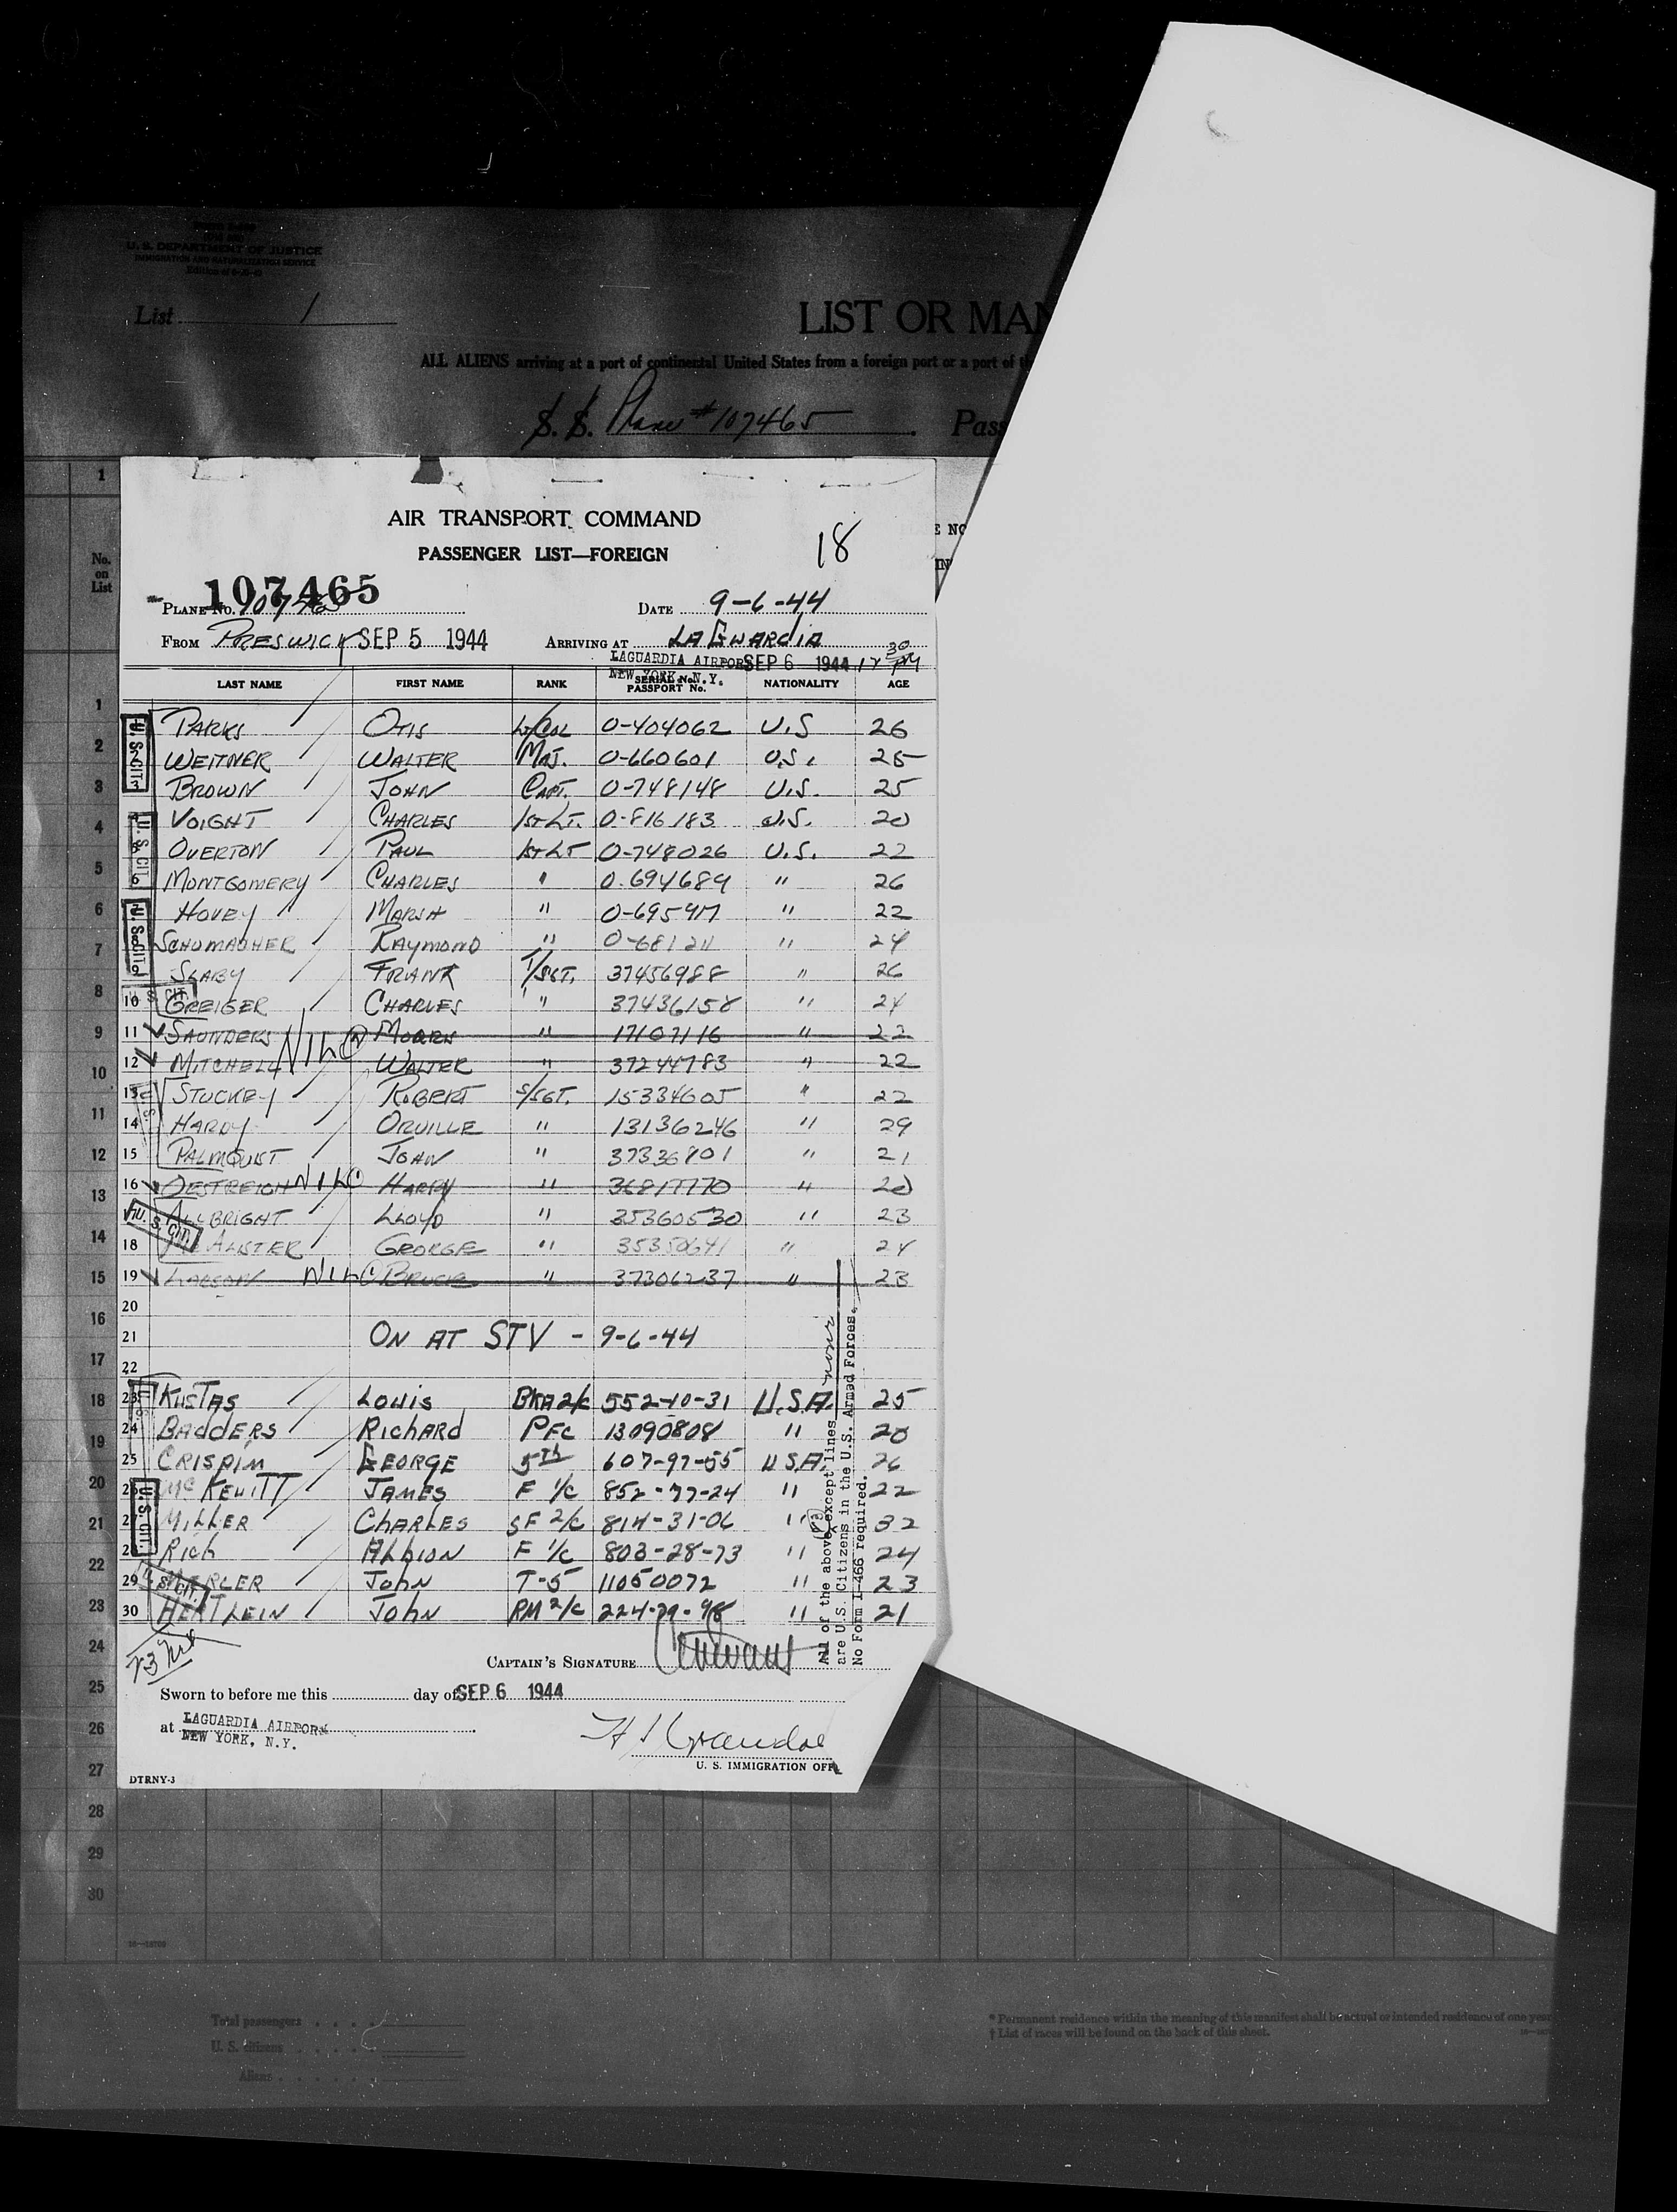 U. S. DEPARTMENT OF JUSTICE
IMMIGRATION AND NATURALIZATION SERVICE
List 1
LIST OR MAN
ALL ALIENS arriving at a port of continental United States from a foreign port or a port of th
S. S. Plane #107465 Pass
AIR TRANSPORT COMMAND
PASSENGER LIST—FOREIGN
18
No. on List
107465
PLANE NO. 107465 DATE 9-6-44
FROM PRESWICK SEP 5 1944 ARRIVING AT LAGUARDIA
LAGUARDIA AIRPORT SEP 6 1944 12 30 PM
NEW YORK, N.Y.
LAST NAME FIRST NAME RANK SERIAL No. PASSPORT No. NATIONALITY AGE
PARKS OTIS Lt/COL 0-404062 U.S 26
WEITNER WALTER MAJ. 0-660601 U.S. 25
BROWN JOHN CAPT. 0-748148 U.S. 25
VOIGHT CHARLES 1st LT. 0-816183 U.S. 20
OVERTON PAUL 1st LT 0-748026 U.S. 22
MONTGOMERY CHARLES " 0.694689 " 26
HOVEY MARSH " 0-695917 " 22
SCHUMACHER RAYMOND " 0-681211 " 24
SLABY FRANK T/SGT. 37456988 " 26
10 GREIGER CHARLES " 37436158 " 24
11 SAUNDERS " 17107116 " 22
12 MITCHELL NILC WALTER " 37244783 " 22
13 STUCKEY ROBERT S/SGT. 15334605 " 22
14 HARDY ORVILLE " 13136246 " 29
15 PALMQUIST JOHN " 37336801 " 21
16 OESTREICH NILC HARRY " 36817770 " 20
ALLBRIGHT LLOYD " 35360530 " 23
18 ALISTER GEORGE " 35350641 " 24
19 LARSON NILC BRUCE " 37306237 " 23
20
21 ON AT STV - 9-6-44
22
23 KUSTAS LOUIS BKR2/c 552-10-31 U.S.A. 25
24 BADDERS RICHARD PFC 13090808 " 20
25 CRISPIM GEORGE 5th 607-97-55 U.S.A. 26
26 McKEWITT JAMES F 1/c 852-77-24 " 22
27 MILLER CHARLES SF 2/c 814-31-06 " 32
28 RICH ALBION F 1/c 803-28-73 " 24
29 JOHN T-5 11050072 " 23
30 HERTLEIN JOHN RM 2/c 224-79-98 " 21
U. S. CIT.
U. S. CIT.
U. S. CIT.
U. S. CIT.
U. S. CIT.
U. S. CIT.
All of the above except lines none
are U.S. Citizens in the U.S. Armed Forces.
No Form I-466 required.
CAPTAIN'S SIGNATURE
Sworn to before me this day of SEP 6 1944
at LAGUARDIA AIRPORT
NEW YORK, N.Y.
U. S. IMMIGRATION OFF
DTRNY-3
1
2
3
4
5
6
7
8
9
10
11
12
13
14
15
16
17
18
19
20
21
22
23
24
25
26
27
28
29
30
Total passengers
U. S. citizens
Aliens
* Permanent residence within the meaning of this manifest shall be actual or intended residence of one year
† List of races will be found on the back of this sheet.